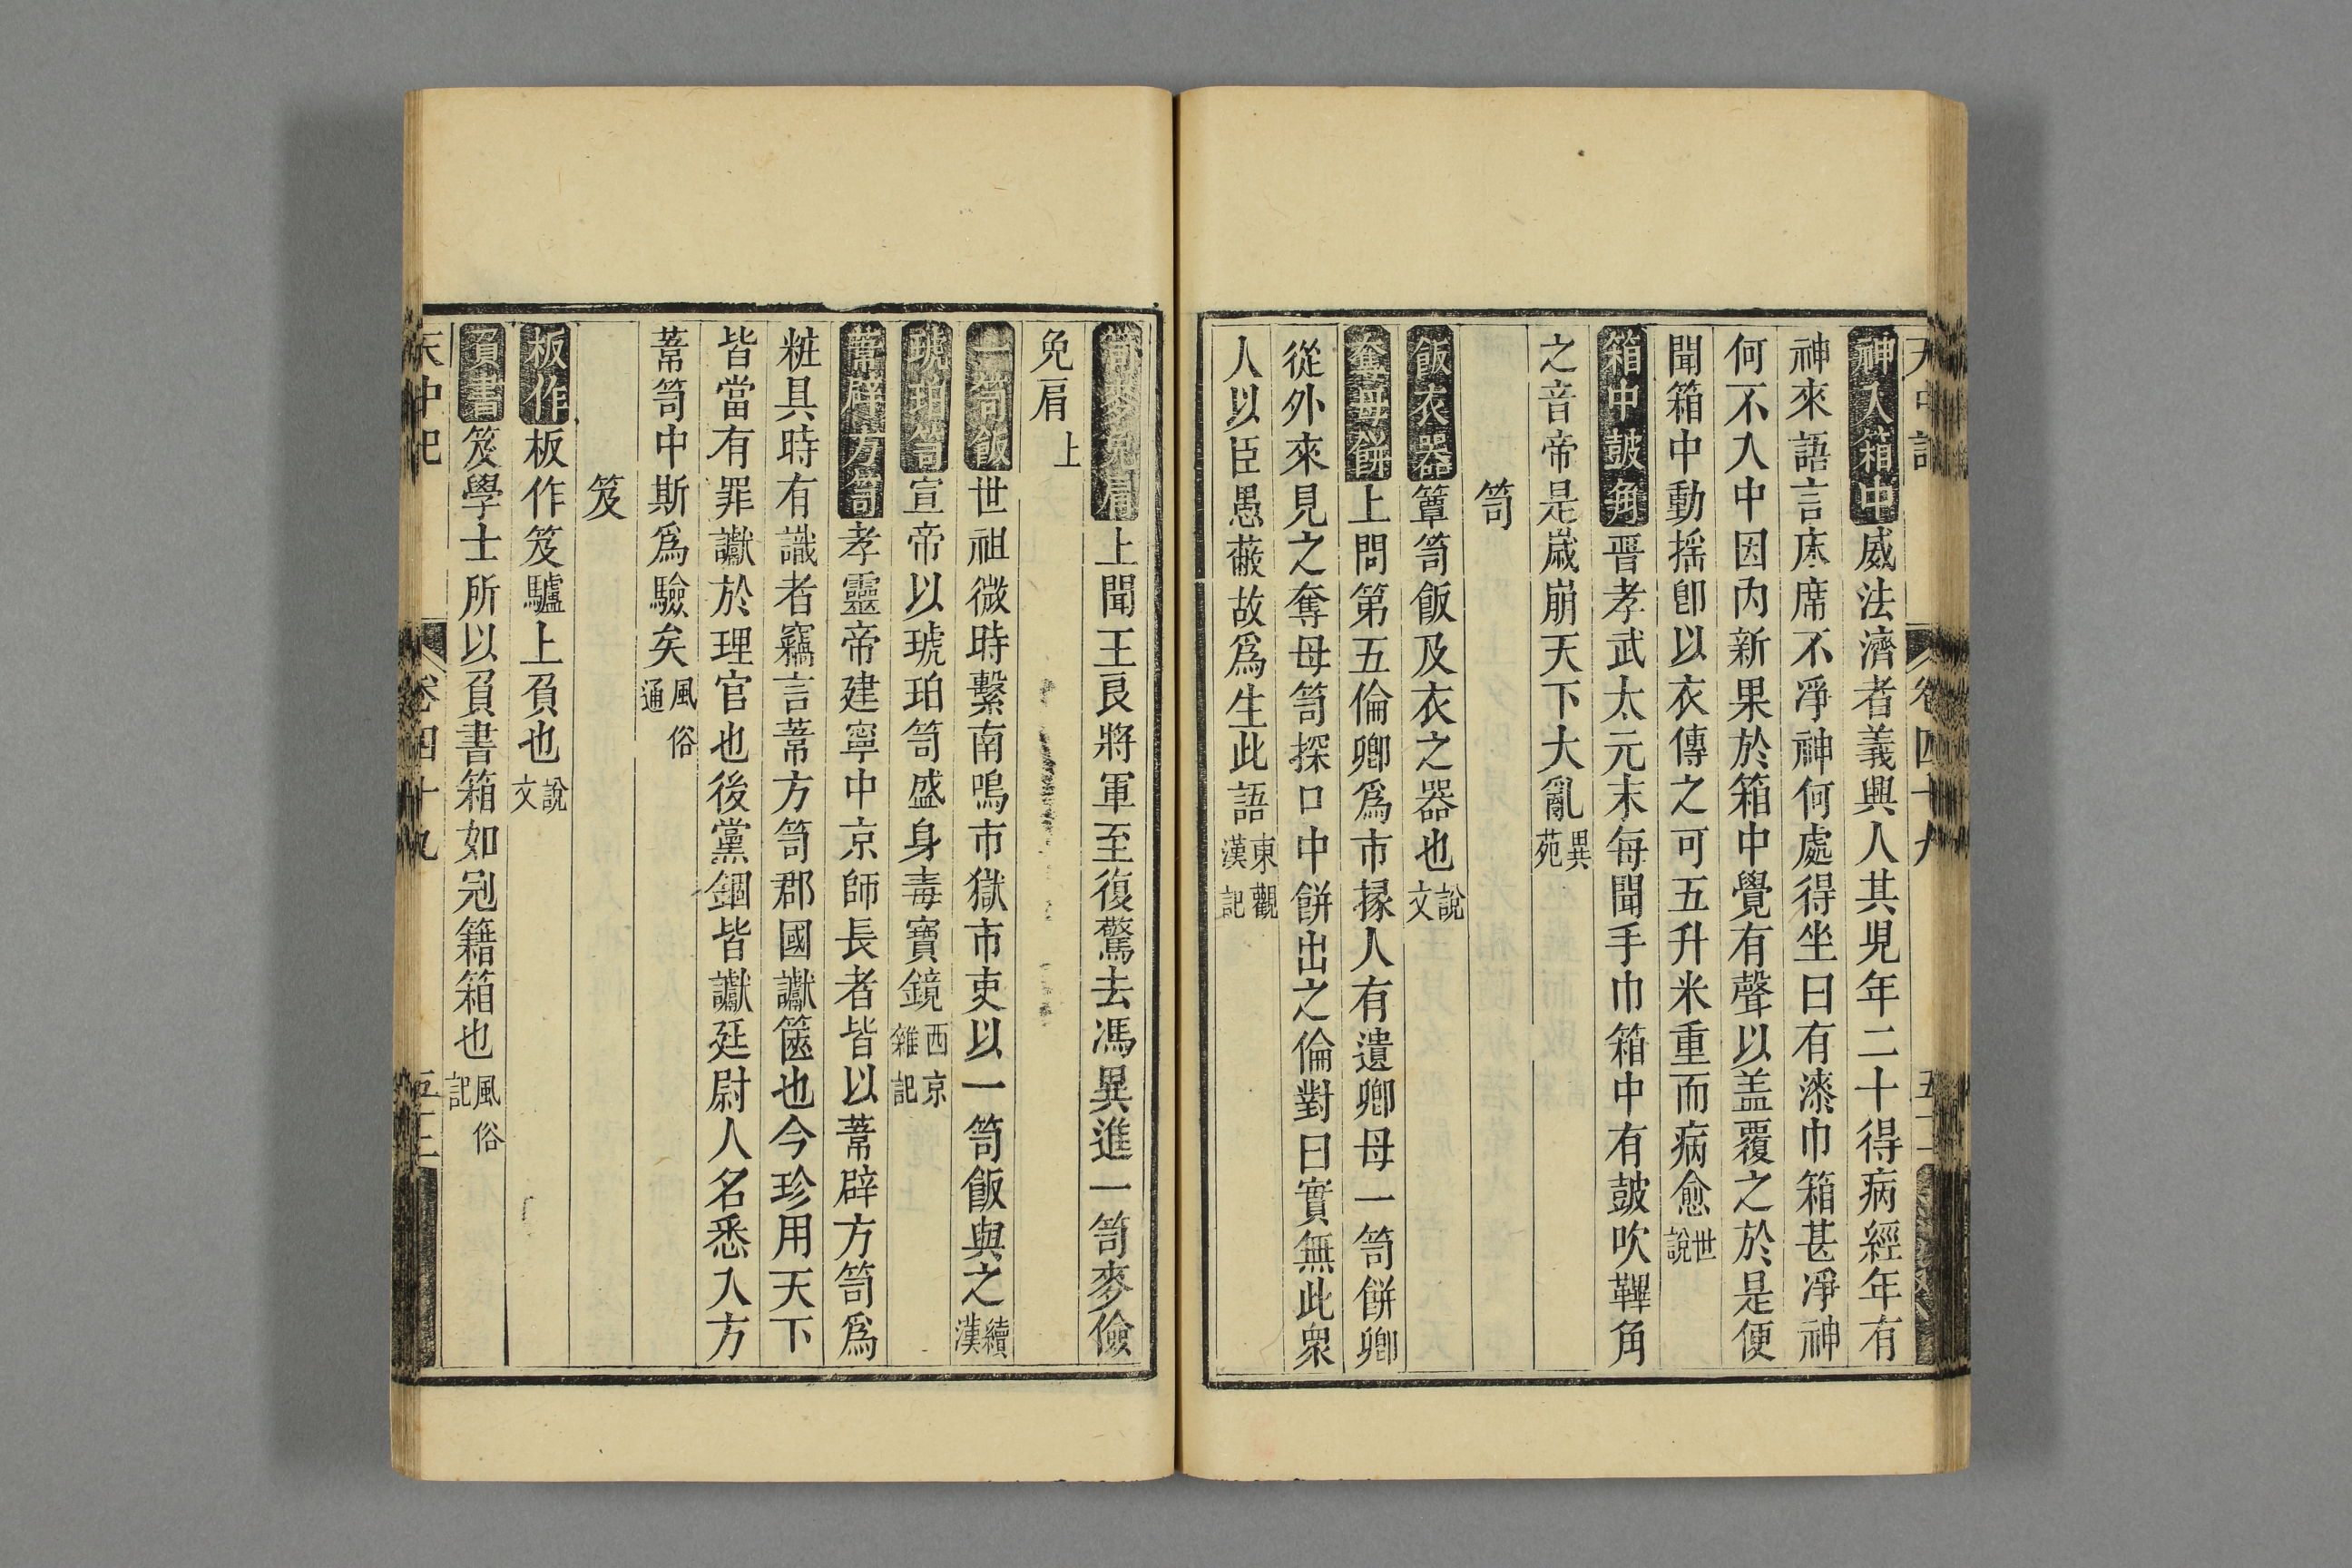 天中記 卷四十九 五十二
神入箱中威法濟者義興人其児年二十得病經年有
神來語言床席不淨神何處得坐曰有漆巾箱甚淨神
何不入中因内新果於箱中覺有聲以盖覆之於是便
聞箱中動揺卽以衣傳之可五升米重而病愈世說
箱中鼓角晉孝武太元末每聞手巾箱中有鼓吹鞞角
之音帝是歳崩天下大亂異苑
笥
飯衣器簞笥飯及衣之器也說文
奪母餅上問第五倫卿爲市掾人有遺卿母一笥餅卿
從外來見之奪母笥探口中餅出之倫對曰實無此衆
人以臣愚蔽故爲生此語東觀漢記
笥麥免肩上聞王良將軍至復驚去馮異進一笥麥儉
免肩上
一笥飯世祖微時繫南嗚市獄市吏以一笥飯與之續漢
琥珀笥宣帝以琥珀笥盛身毒寶鏡西京雜記
葦辟方笥孝靈帝建寧中京師長者皆以葦辟方笥爲
粧具時有識者竊言葦方笥郡國讞篋也今珍用天下
皆當有罪讞於理官也後黨錮皆讞廷尉人名悉入方
葦笥中斯爲驗矣風俗通
笈
板作板作笈驢上負也說文
負書笈學士所以負書箱如冠籍箱也風俗記
天中記 卷四十九 五十二